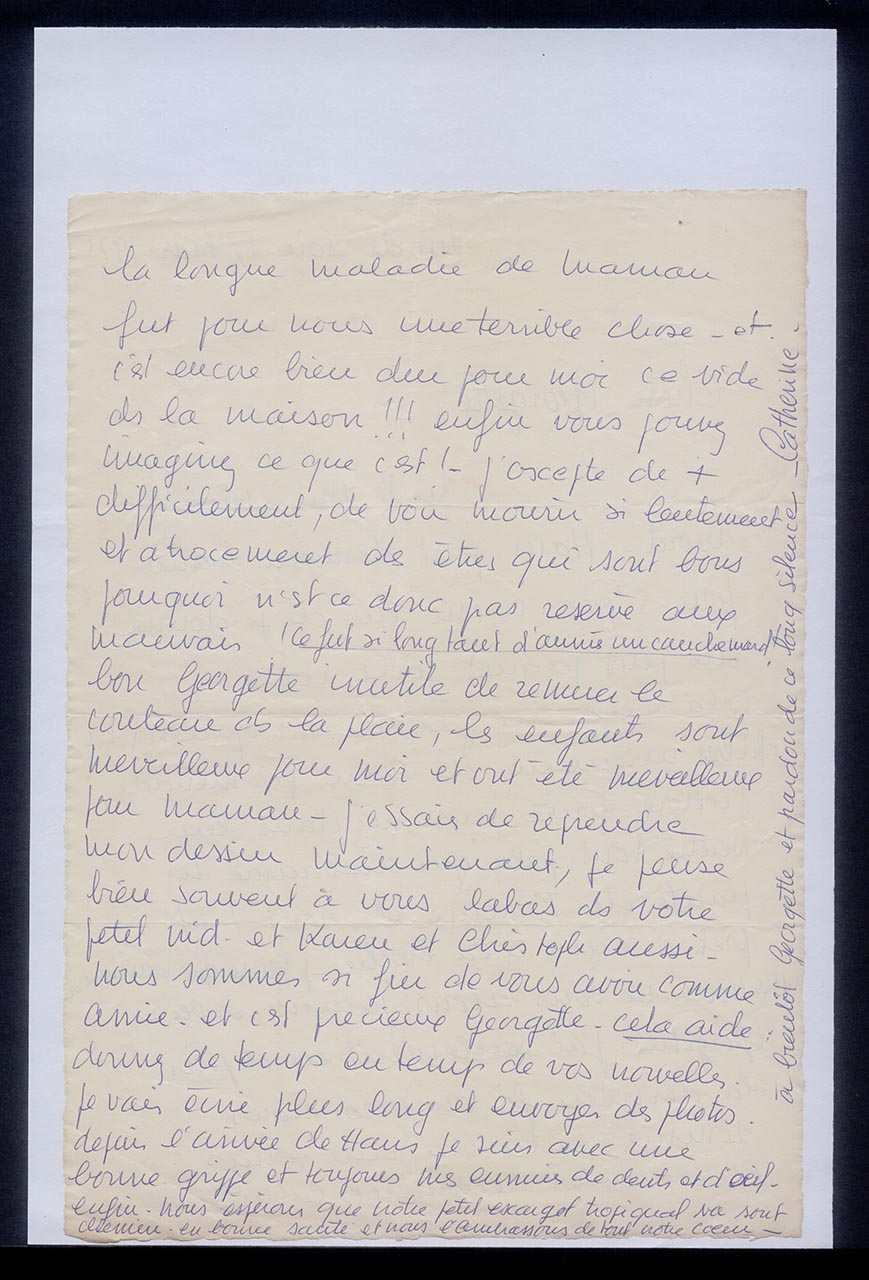 la longue maladie de Maman
fut pour nous une terrible chose - et
c'est encore bien dur pour moi ce vide
ds la maison !!! enfin vous pouvez
imaginez ce que c'est ! - j'accepte de +
difficilement, de voir mourir si lentement
et atrocement des êtres qui sont bons
pourquoi n'est ce donc pas reservé aux
mauvais ! ce fut si long tant d'années un cauchemard
bon Georgette inutile de remuer le
couteau ds la plaie, les enfants sont
merveilleux pour moi et ont été merveilleux
pour Maman - j'essais de reprendre
mon dessin maintenant, je pense
bien souvent à vous labas ds votre
petet nid - et Karen et Christoph aussi -
nous sommes si fier de vous avoir comme
amie - et c'est precieux Georgette - cela aide
donnez de temps en temps de vos nouvelles.
je vais écrire plus long et envoyer des photos.
depuis l'arrivée de Hans je suis avec une
bonne grippe et toujours mes ennuies de dents et d'œil -
enfin - nous esperons que notre petet escargot tropiqual va sont
chemin - en bonne santé et nous l'ambrassons de tout notre coeur -
à bientôt Georgette et pardon de ce long silence - Catherine -